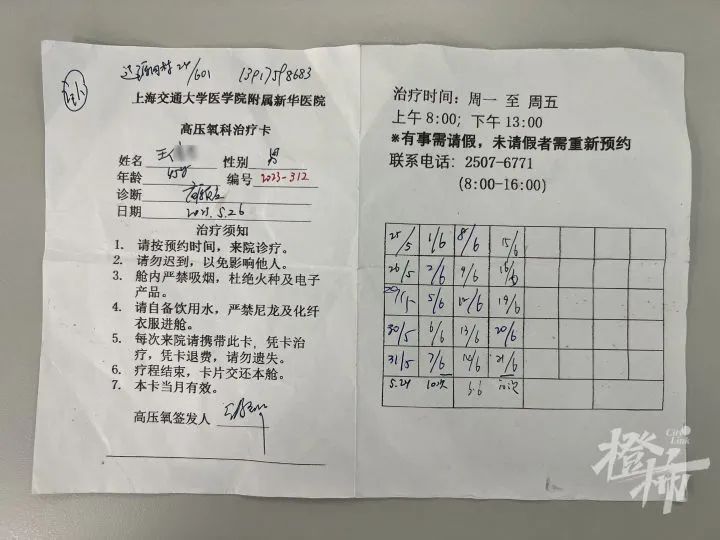 24/601 13917598683
上海交通大学医学院附属新华医院
高压氧科治疗卡
姓名 王 性别 男
年龄 45岁 编号 2023-312
诊断
日期 2023.5.26
治疗须知
1. 请按预约时间，来院诊疗。
2. 请勿迟到，以免影响他人。
3. 舱内严禁吸烟，杜绝火种及电子
产品。
4. 请自备饮用水，严禁尼龙及化纤
衣服进舱。
5. 每次来院请携带此卡，凭卡治
疗，凭卡退费，请勿遗失。
6. 疗程结束，卡片交还本舱。
7. 本卡当月有效。
高压氧签发人
治疗时间：周一 至 周五
上午 8:00；下午 13:00
*有事需请假，未请假者需重新预约
联系电话：2507-6771
(8:00-16:00)
25/5 1/6 8/6 15/6
26/5 2/6 9/6 16/6
29/5 5/6 12/6 19/6
30/5 6/6 13/6 20/6
31/5 7/6 14/6 21/6
5.24 10次 6.6 10次
橙柿
City Link